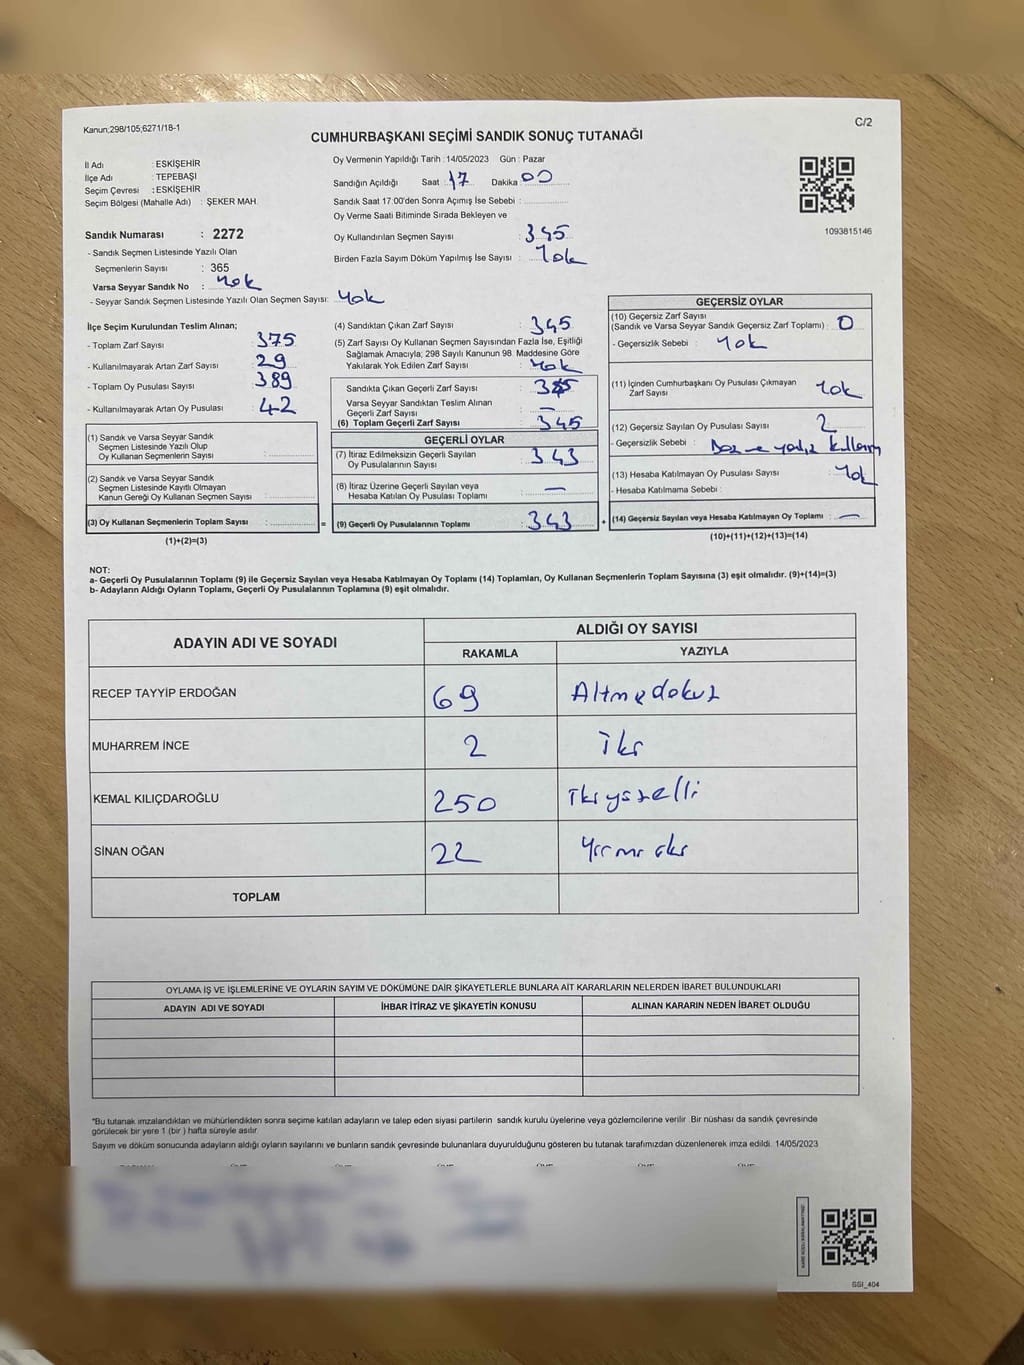 Kanun;298/105;6271/18-1
C/2
CUMHURBAŞKANI SEÇİMİ SANDIK SONUÇ TUTANAĞI
İl Adı : ESKİŞEHİR
İlçe Adı : TEPEBAŞI
Seçim Çevresi : ESKİŞEHİR
Seçim Bölgesi (Mahalle Adı) : ŞEKER MAH.
Sandık Numarası : 2272
- Sandık Seçmen Listesinde Yazılı Olan
Seçmenlerin Sayısı : 365
Varsa Seyyar Sandık No : Yok
- Seyyar Sandık Seçmen Listesinde Yazılı Olan Seçmen Sayısı: Yok
Oy Vermenin Yapıldığı Tarih : 14/05/2023 Gün : Pazar
Sandığın Açıldığı Saat : 17 Dakika 00
Sandık Saat 17:00'den Sonra Açımış İse Sebebi :
Oy Verme Saati Bitiminde Sırada Bekleyen ve
Oy Kullandırılan Seçmen Sayısı : 345
Birden Fazla Sayım Döküm Yapılmış İse Sayısı : Yok
1093815146
İlçe Seçim Kurulundan Teslim Alınan;
- Toplam Zarf Sayısı : 375
- Kullanılmayarak Artan Zarf Sayısı : 29
- Toplam Oy Pusulası Sayısı : 389
- Kullanılmayarak Artan Oy Pusulası : 42
(1) Sandık ve Varsa Seyyar Sandık
Seçmen Listesinde Yazılı Olup
Oy Kullanan Seçmenlerin Sayısı :
(2) Sandık ve Varsa Seyyar Sandık
Seçmen Listesinde Kayıtlı Olmayan
Kanun Gereği Oy Kullanan Seçmen Sayısı :
(3) Oy Kullanan Seçmenlerin Toplam Sayısı : =
(1)+(2)=(3)
(4) Sandıktan Çıkan Zarf Sayısı : 345
(5) Zarf Sayısı Oy Kullanan Seçmen Sayısından Fazla İse, Eşitliği
Sağlamak Amacıyla; 298 Sayılı Kanunun 98. Maddesine Göre
Yakılarak Yok Edilen Zarf Sayısı : Yok
Sandıkta Çıkan Geçerli Zarf Sayısı : 345
Varsa Seyyar Sandıktan Teslim Alınan
Geçerli Zarf Sayısı : —
(6) Toplam Geçerli Zarf Sayısı : 345
GEÇERLİ OYLAR
(7) İtiraz Edilmeksizin Geçerli Sayılan
Oy Pusulalarının Sayısı : 343
(8) İtiraz Üzerine Geçerli Sayılan veya
Hesaba Katılan Oy Pusulası Toplamı : —
(9) Geçerli Oy Pusulalarının Toplamı : 343 +
GEÇERSİZ OYLAR
(10) Geçersiz Zarf Sayısı
(Sandık ve Varsa Seyyar Sandık Geçersiz Zarf Toplamı) : 0
- Geçersizlik Sebebi : Yok
(11) İçinden Cumhurbaşkanı Oy Pusulası Çıkmayan
Zarf Sayısı Yok
(12) Geçersiz Sayılan Oy Pusulası Sayısı : 2
- Geçersizlik Sebebi :
(13) Hesaba Katılmayan Oy Pusulası Sayısı : Yok
- Hesaba Katılmama Sebebi :
(14) Geçersiz Sayılan veya Hesaba Katılmayan Oy Toplamı : —
(10)+(11)+(12)+(13)=(14)
NOT:
a- Geçerli Oy Pusulalarının Toplamı (9) ile Geçersiz Sayılan veya Hesaba Katılmayan Oy Toplamı (14) Toplamları, Oy Kullanan Seçmenlerin Toplam Sayısına (3) eşit olmalıdır. (9)+(14)=(3)
b- Adayların Aldığı Oyların Toplamı, Geçerli Oy Pusulalarının Toplamına (9) eşit olmalıdır.
ADAYIN ADI VE SOYADI
ALDIĞI OY SAYISI
RAKAMLA YAZIYLA
RECEP TAYYİP ERDOĞAN 69 Altmışdokuz
MUHARREM İNCE 2 iki
KEMAL KILIÇDAROĞLU 250 ikiyüzelli
SİNAN OĞAN 22 Yirmi iki
TOPLAM
OYLAMA İŞ VE İŞLEMLERİNE VE OYLARIN SAYIM VE DÖKÜMÜNE DAİR ŞİKAYETLERLE BUNLARA AİT KARARLARIN NELERDEN İBARET BULUNDUKLARI
ADAYIN ADI VE SOYADI İHBAR İTİRAZ VE ŞİKAYETİN KONUSU ALINAN KARARIN NEDEN İBARET OLDUĞU
*Bu tutanak imzalandıktan ve mühürlendikten sonra seçime katılan adayların ve talep eden siyasi partilerin sandık kurulu üyelerine veya gözlemcilerine verilir. Bir nüshası da sandık çevresinde
görülecek bir yere 1 (bir ) hafta süreyle asılır.
Sayım ve döküm sonucunda adayların aldığı oyların sayılarını ve bunların sandık çevresinde bulunanlara duyurulduğunu gösteren bu tutanak tarafımızdan düzenlenerek imza edildi. 14/05/2023
GSI_404